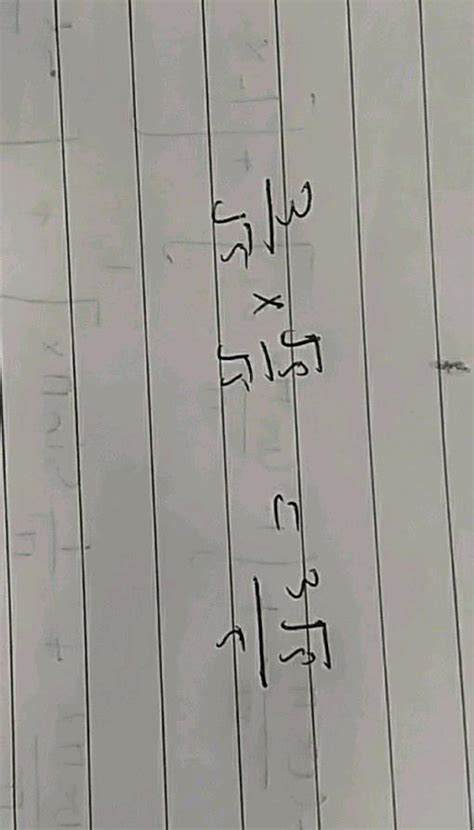 3/√5 × √5/√5 = 3√5/5